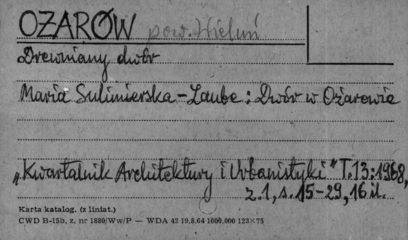 OŻARÓW pow. Wieluń
Drewniany dwór
Maria Sulimierska-Laube: Dwór w Ożarowie
„Kwartalnik Architektury i Urbanistyki" T.13:1968,
z.1, s. 15-29, 16 il.
Karta katalog. (z liniat.)
CWD B-15b, z. nr 1880/Ww/P — WDA 42 19.8.64 1000.000 125×75